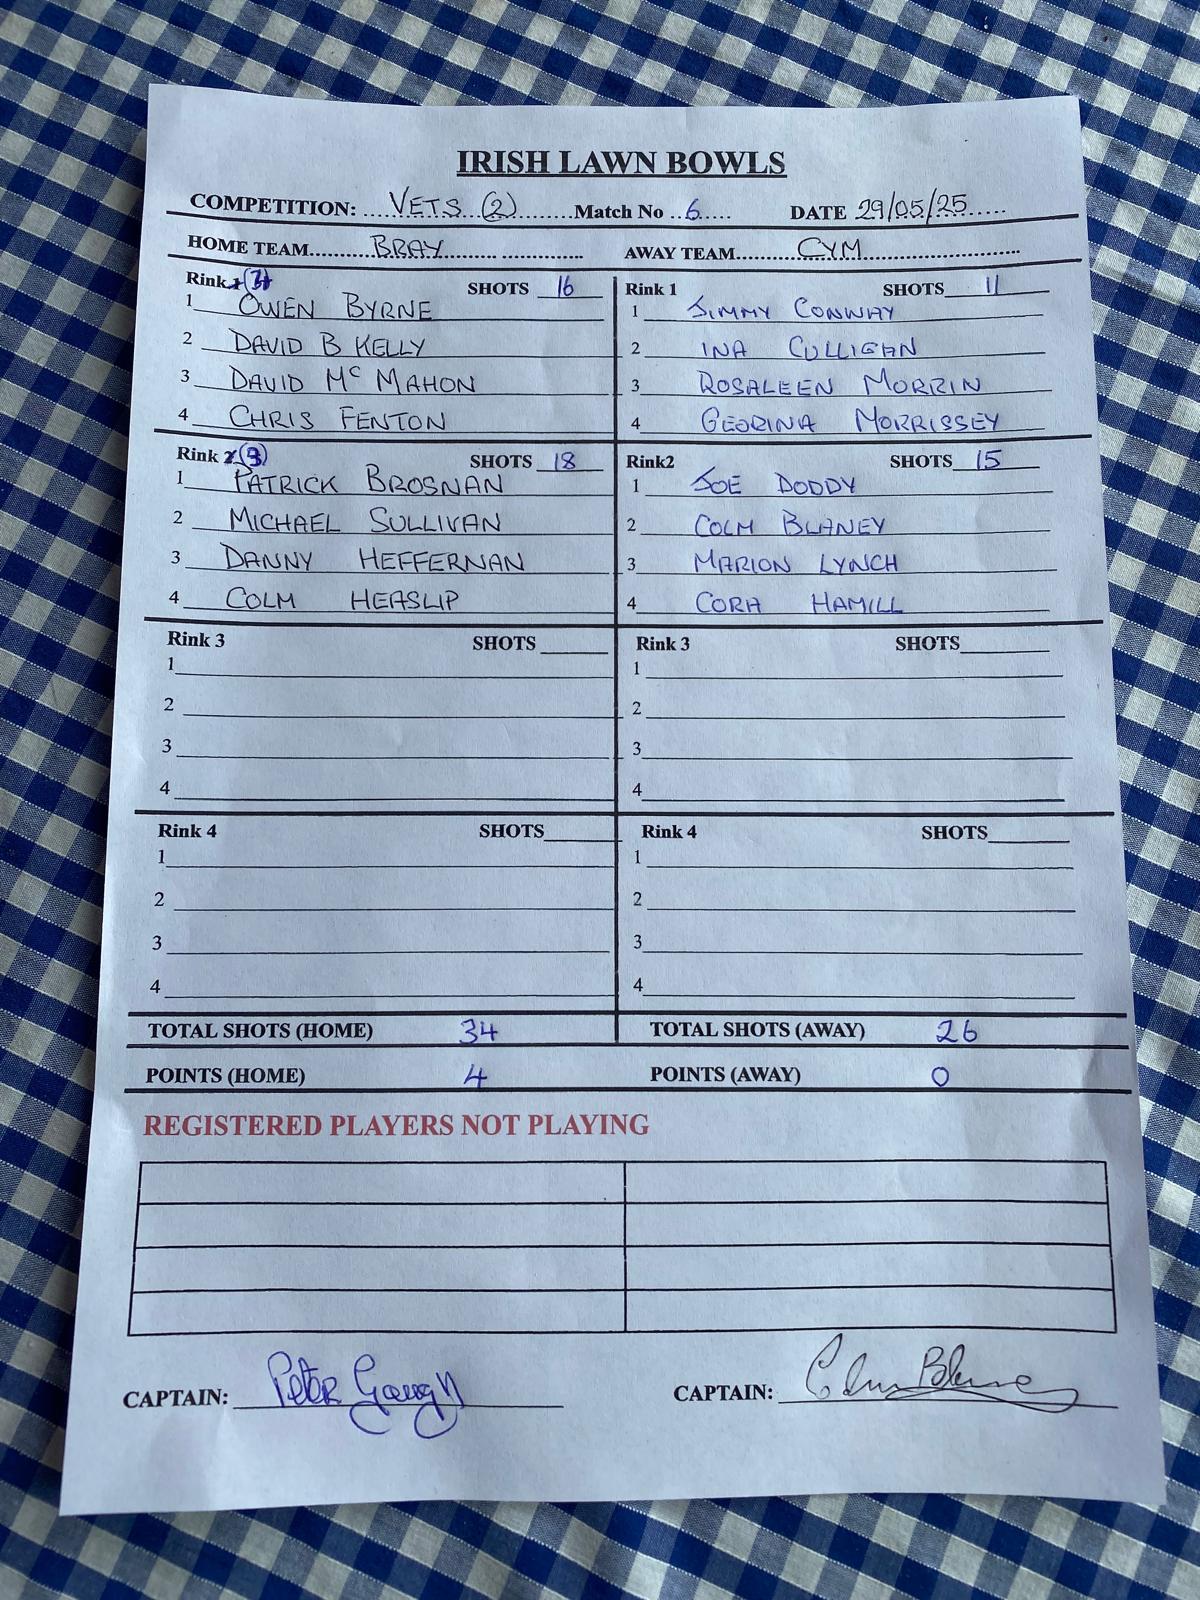 IRISH LAWN BOWLS
COMPETITION: VETS (2) Match No 6 DATE 29/05/25
HOME TEAM BRAY AWAY TEAM CYM
Rink SHOTS 16 Rink 1 SHOTS 11
1 OWEN BYRNE 1 JIMMY CONWAY
2 DAVID B KELLY 2 INA CULLIGAN
3 DAVID Mc MAHON 3 ROSALEEN MORRIN
4 CHRIS FENTON 4 GEORINA MORRISSEY
Rink 2 (3) SHOTS 18 Rink2 SHOTS 15
1 PATRICK BROSNAN 1 JOE DODDY
2 MICHAEL SULLIVAN 2 COLM BLANEY
3 DANNY HEFFERNAN 3 MARION LYNCH
4 COLM HEASLIP 4 CORA HAMILL
Rink 3 SHOTS Rink 3 SHOTS
1 1
2 2
3 3
4 4
Rink 4 SHOTS Rink 4 SHOTS
1 1
2 2
3 3
4 4
TOTAL SHOTS (HOME) 34 TOTAL SHOTS (AWAY) 26
POINTS (HOME) 4 POINTS (AWAY) 0
REGISTERED PLAYERS NOT PLAYING
CAPTAIN: Peter CAPTAIN: Colm Blaney